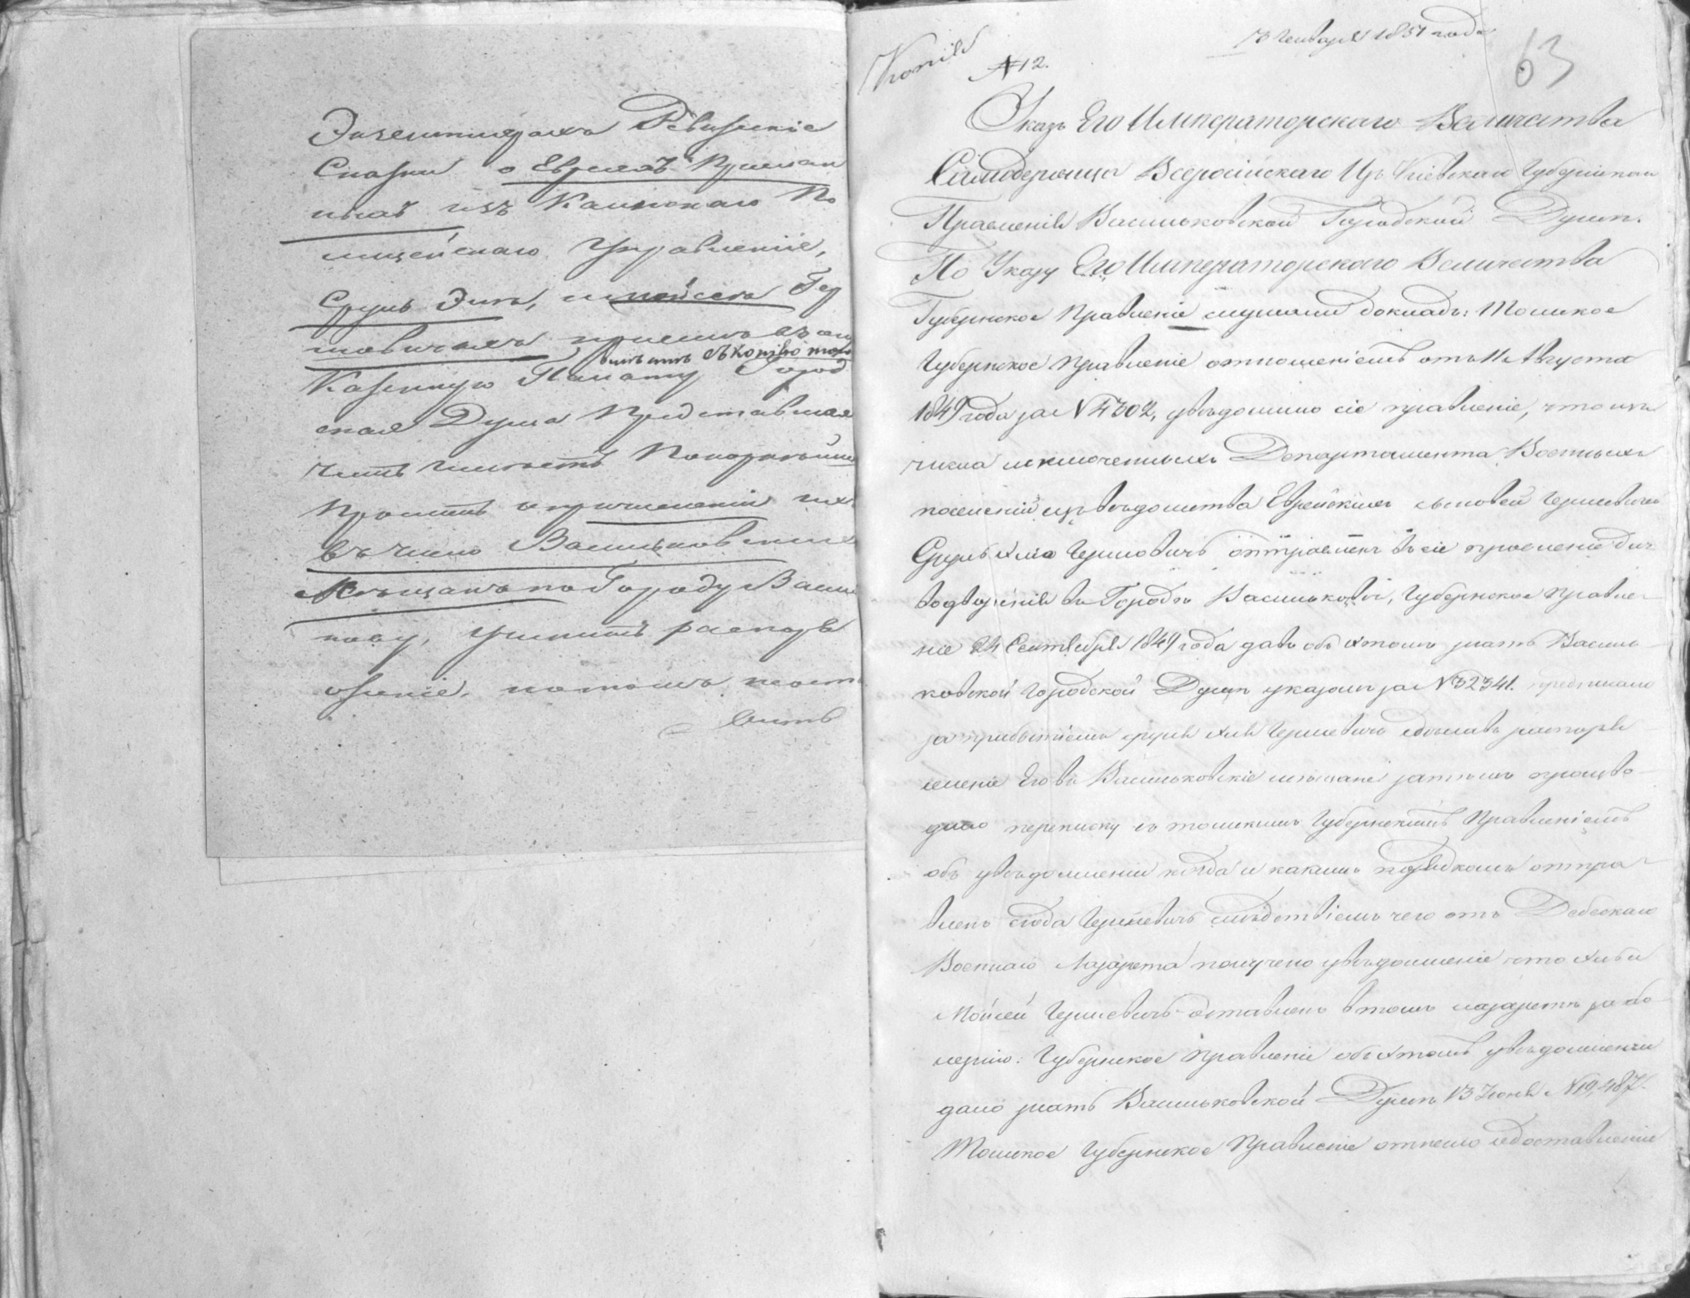 Экземплярахъ Ревизскіе
Сказки о Евреяхъ Прислан
ныхъ изъ Каинскаго По
лицейскаго Управленія,
Сруль Эль, и Мойсея Гер
шевичахъ
Казенную Палату Город
ская Дума Представляя
честь имѣетъ Покорнѣйше
Просить о причисленіи ихъ
въ число Васильковскихъ
Мѣщанъ по Городу Василь
кову, учинить распоря
женіе,
Копія
№ 12.
Января 1851 года
63
Указъ Его Императорскаго Величества
Самодержца Всероссійскаго Изъ Кіевскаго Губернскаго
Правленія Васильковской Городской Думѣ.
По Указу Его Императорскаго Величества
Губернское Правленіе слушали докладъ: Томское
Губернское Правленіе отношеніемъ отъ 11 Августа
1849 года за № 4302, увѣдомило сіе правленіе, что изъ
числа исключенныхъ Департамента Военныхъ
поселеній изъ вѣдомства Еврейскихъ сыновей Гершевичъ
Сруль Гершовичъ отправленъ въ сіе правленіе для
водворенія въ Городѣ Васильковѣ, Губернское Правле-
ніе 24 Сентября 1849 года давъ объ этомъ знать Василь-
ковской Городской Думѣ указомъ за № 32341. предписало
за прибытіемъ Сруля Гершевича
Его въ Васильковскіе мѣщане затѣмъ произво-
дило переписку съ томскимъ Губернскимъ Правленіемъ
объ увѣдомленіи когда и какимъ порядкомъ отпра-
вленъ сюда Гершевичъ слѣдствіемъ чего отъ Дебескаго
Военнаго Лазарета получено увѣдомленіе что
Мойсей Гершевичъ оставленъ въ томъ лазаретѣ за бо-
лезнію: Губернское Правленіе объ этомъ увѣдомленіи
дало знать Васильковской Думѣ 13 Іюня № 19,487
Томское Губернское Правленіе о доставленіе